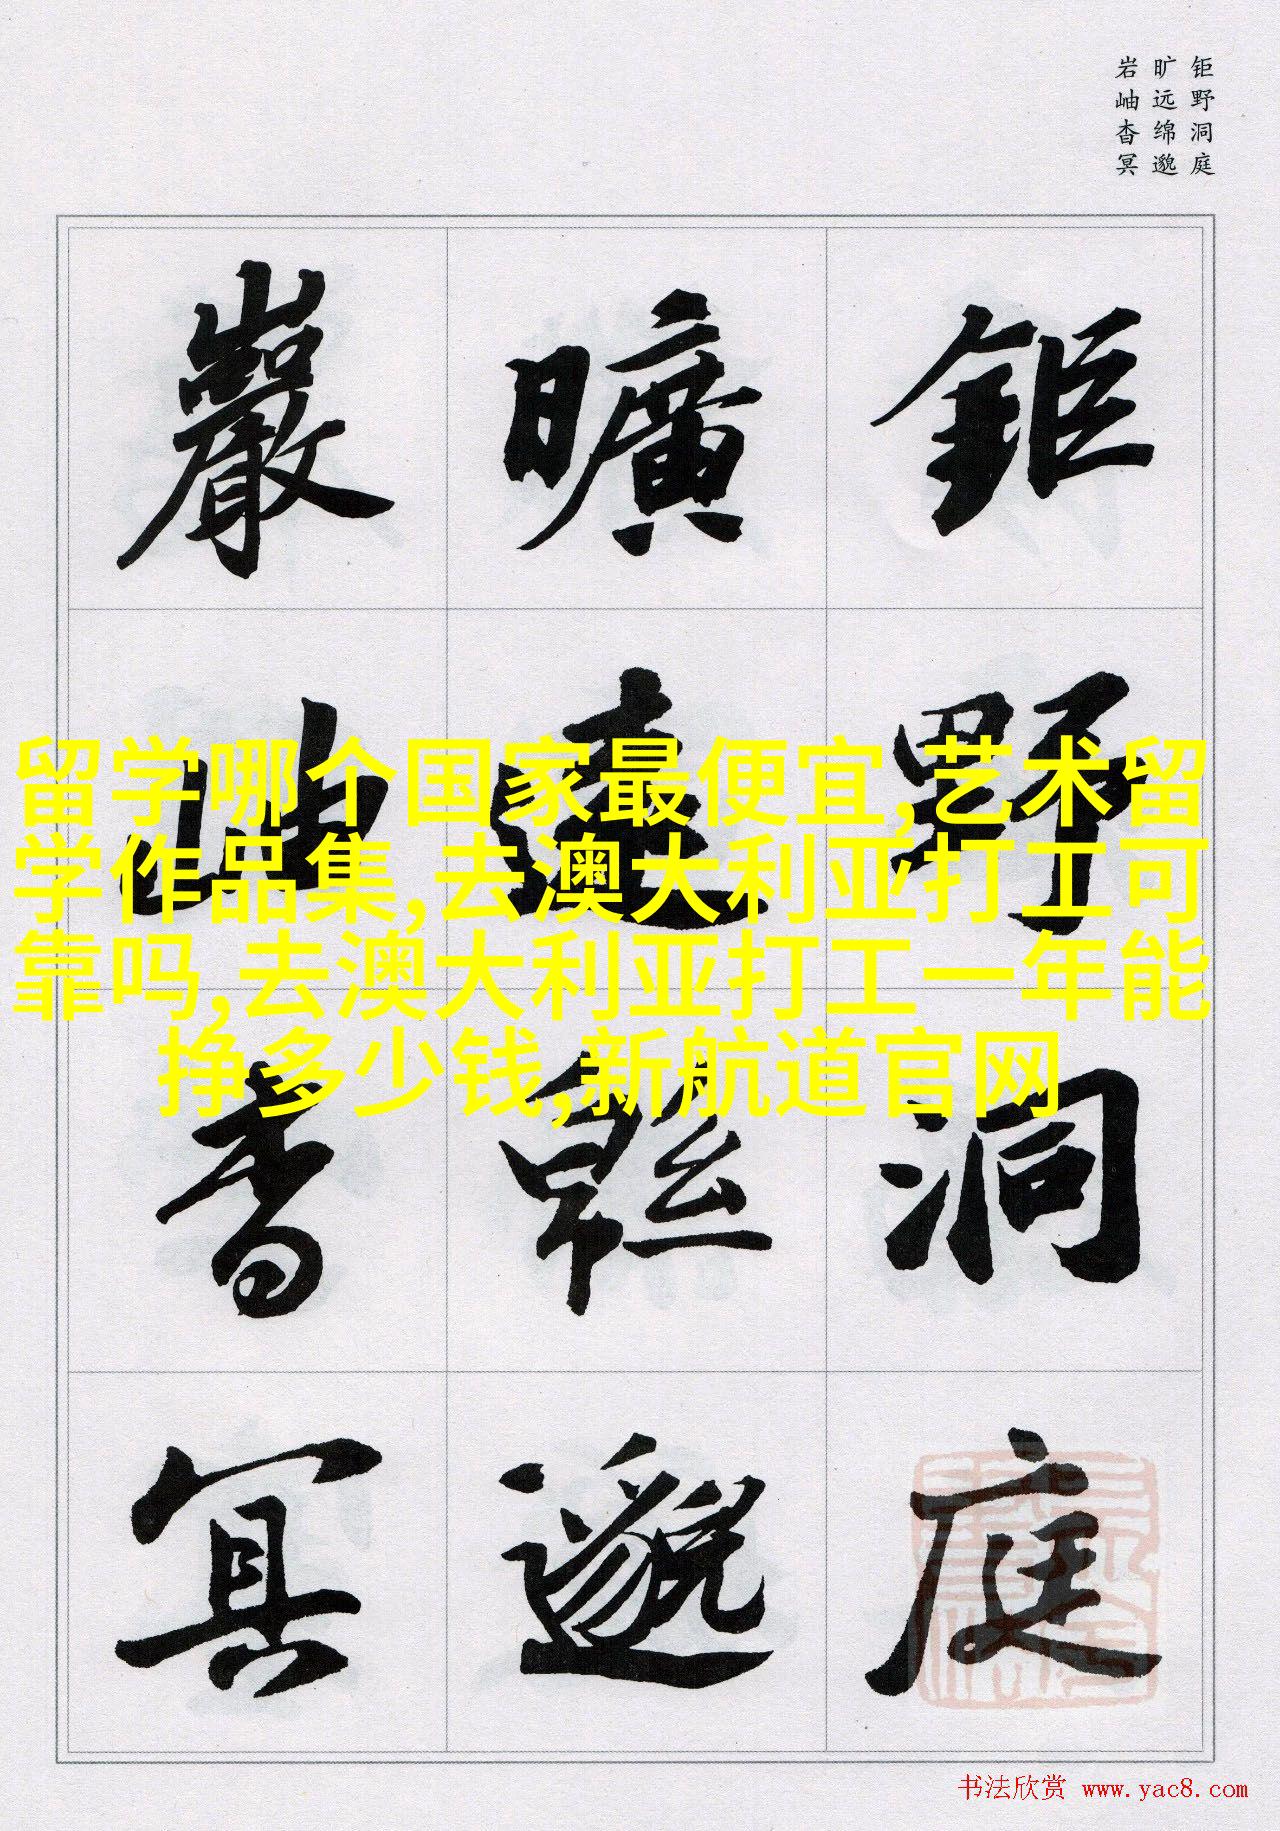 钜野洞庭
旷远绵邈
岩岫杳冥
鉅野洞庭
曠遠緜邈
巖岫杳冥
留学哪个国家最便宜,艺术留
学作品集,去澳大利亚打工可
靠吗,去澳大利亚打工一年能
挣多少钱,新航道官网
书法欣赏 www.yac8.com